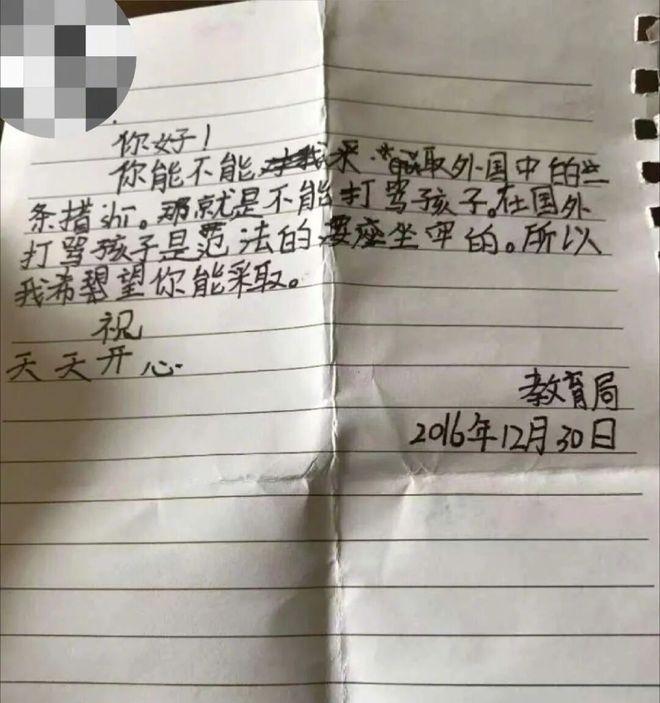 你好！
你能不能采取外国中的一
条措shī。那就是不能打骂孩子。在国外
打骂孩子是范法的要座坐牢的。所以
我希望望你能采取。
祝
天天开心
教育局
2016年12月30日